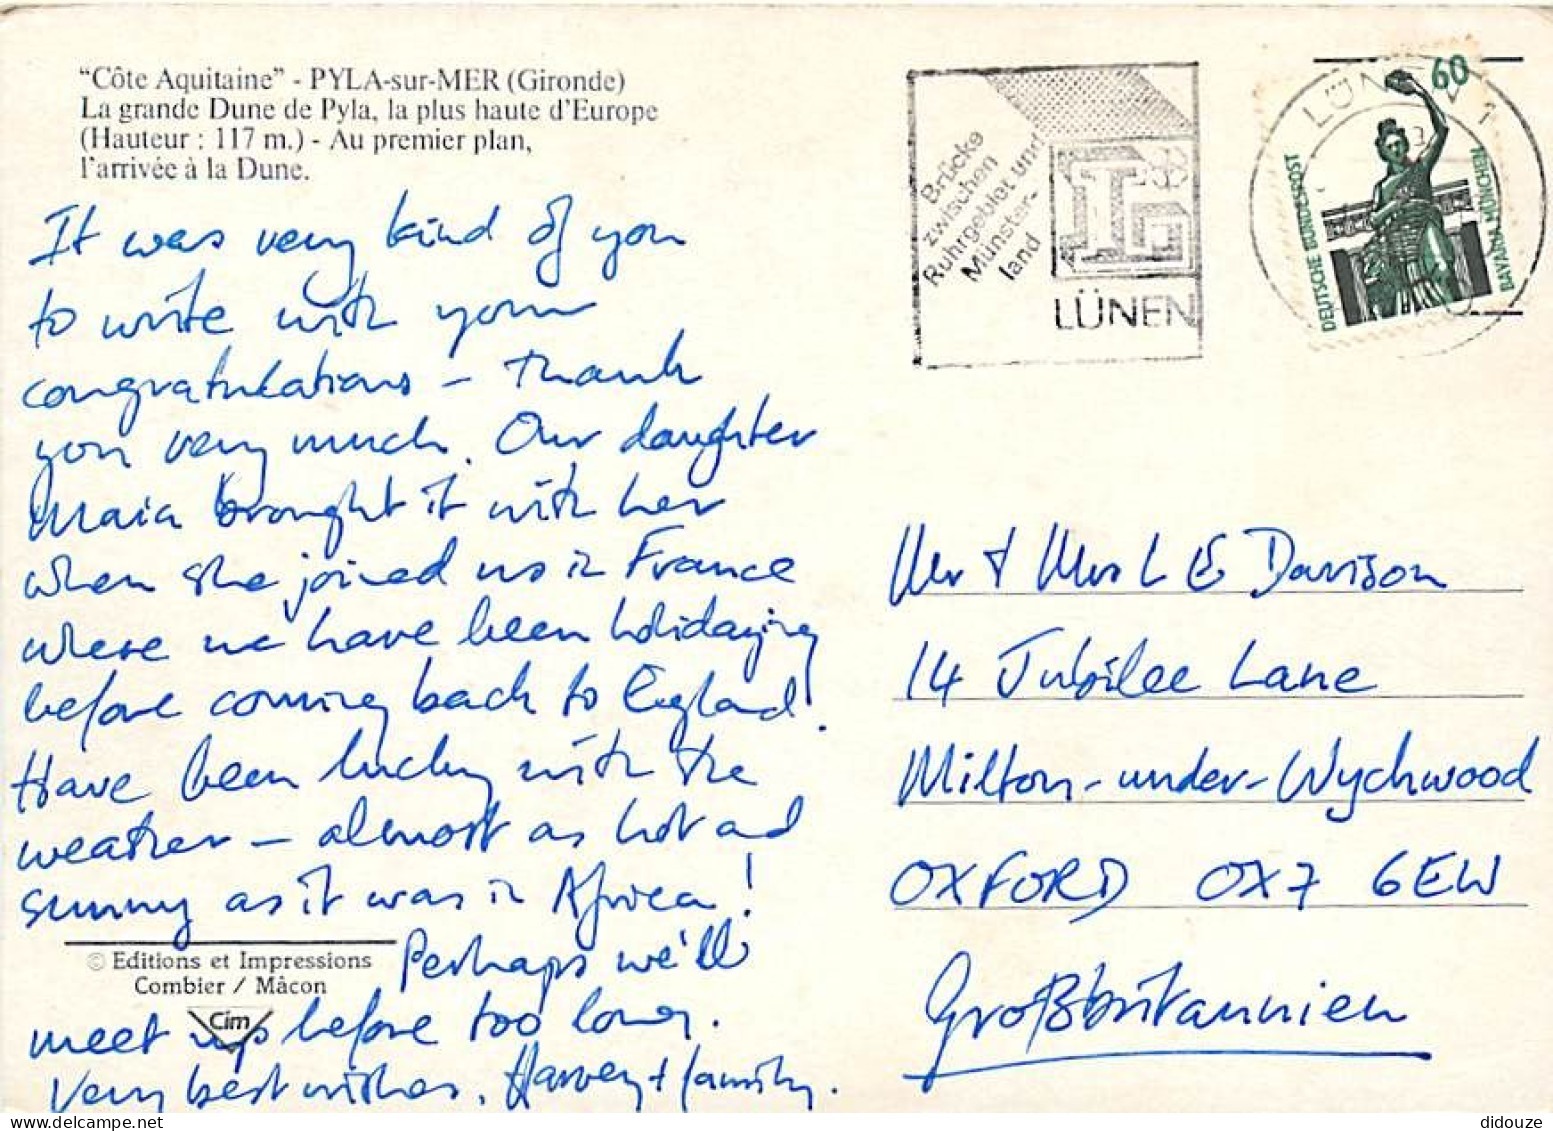 "Côte Aquitaine" - PYLA-sur-MER (Gironde)
La grande Dune de Pyla, la plus haute d'Europe
(Hauteur : 117 m.) - Au premier plan,
l'arrivée à la Dune.
It was very kind of you
to write with your
congratulations – Thank
you very much. Our daughter
Maia brought it with her
when she joined us in France
where we have been holidaying
before coming back to England.
Have been lucky with the
weather – almost as hot and
sunny as it was in Africa!
Perhaps we'll
meet up before too long.
Very best wishes, Harvey + family.
© Editions et Impressions
Combier / Mâcon
Cim
Brücke
zwischen
Ruhrgebiet und
Münster-
land
LÜNEN
LÜNEN 1
60
DEUTSCHE BUNDESPOST
BAVARIA MÜNCHEN
Mr + Mrs L E Davison
14 Jubilee Lane
Milton-under-Wychwood
OXFORD OX7 6EW
Großbritannien
didouze